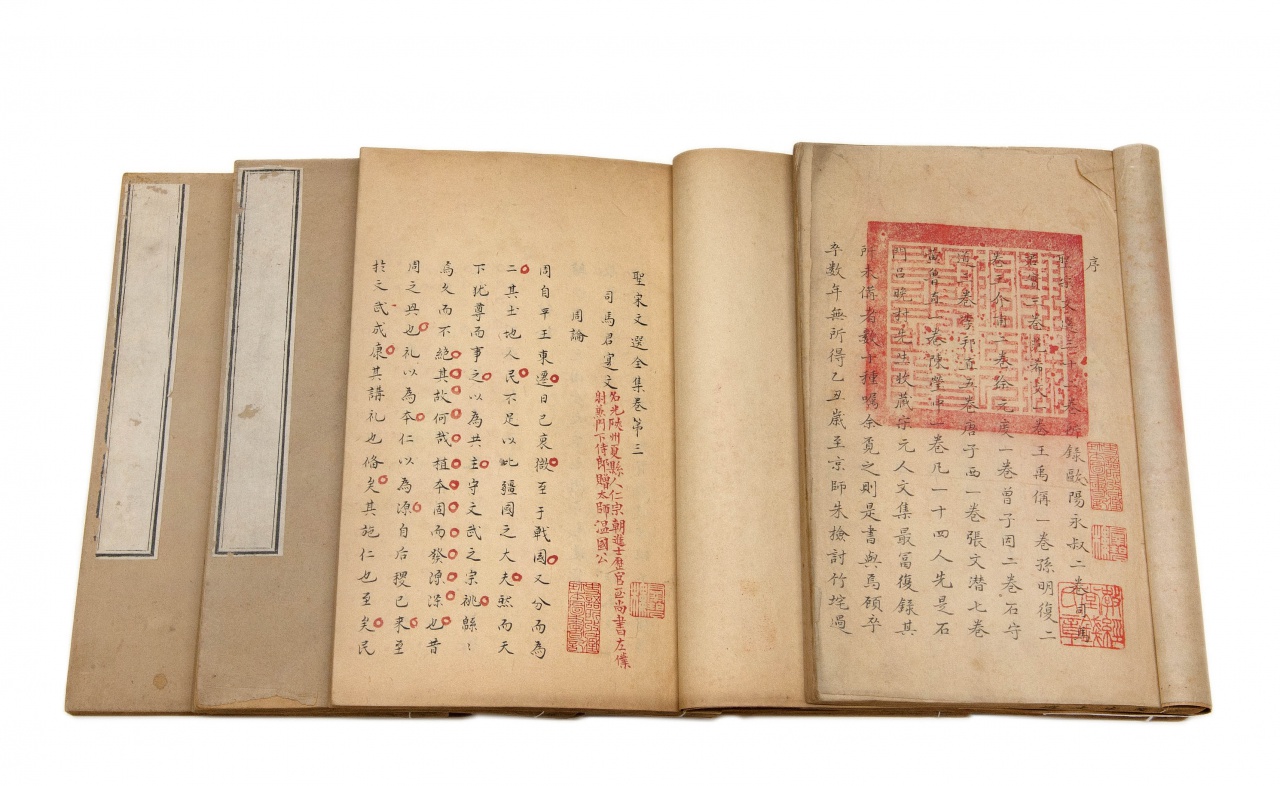 序
聖宋文選三十二卷所錄歐陽永叔二卷司馬
君實三卷范希文一卷王禹偁一卷孫明復二
卷王介甫二卷余元度一卷曾子固二卷石守
道三卷李邦直五卷唐子西一卷張文潛七卷
黃魯直一卷陳瑩中一卷凡一十四人先是石
門呂晚村先生收藏宋元人文集最富復錄其
所未備者數十種囑余覓之則是書與焉頋卒
卒數年無所得乙丑歲至京師朱檢討竹垞過
聖宋文選全集卷第三
司馬君寔文
名光陝州夏縣人仁宗朝進士歷官至尚書左僕
射兼門下侍郎贈太師溫國公
周論
周自平王東遷日已衰微至于戰國又分而為
二其土地人民不足以比彊國之大夫然而天
下犹尊而事之以為共主守文武之宗祧緜〻
焉久而不絕其故何哉植本固而發源深也昔
周之興也礼以為本仁以為源自后稷已來至
於文武成康其講礼也脩矣其施仁也至矣民